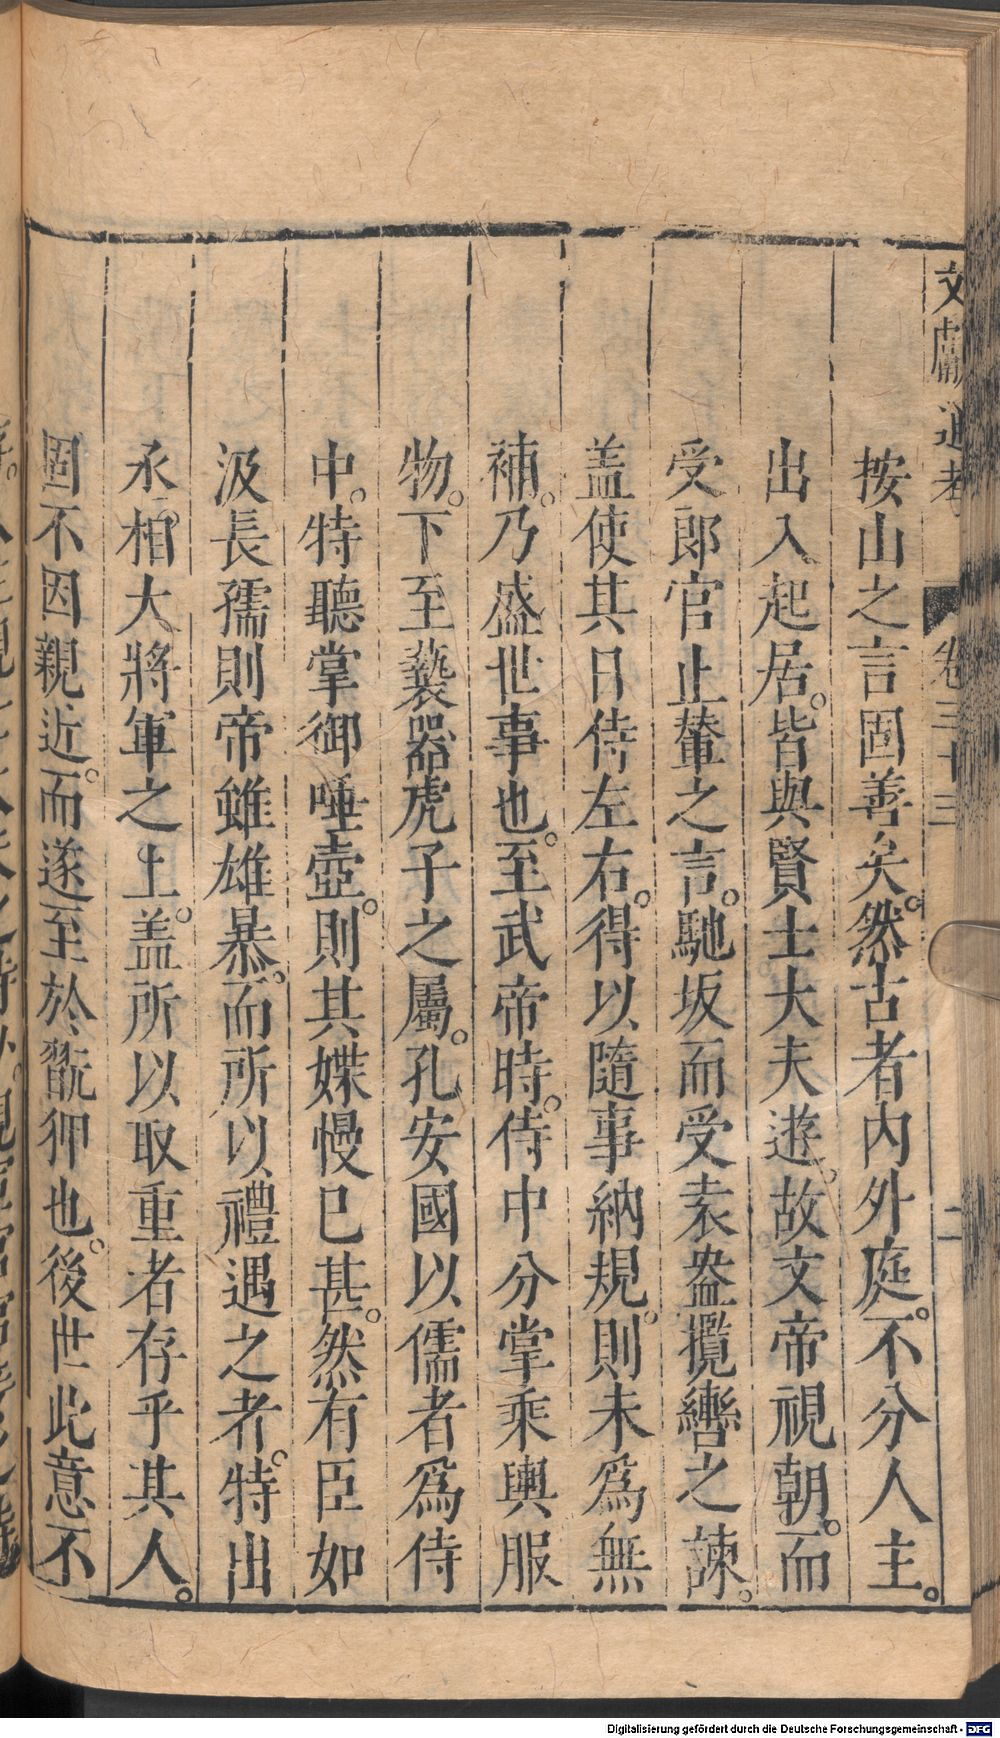 文獻通考 卷三十三 二
按山之言固善矣。然古者內外庭。不分人主。
出入起居。皆與賢士大夫遊。故文帝視朝。而
受郎官止輦之言。馳坂而受袁盎攬轡之諫。
盖使其日侍左右。得以隨事納規。則未為無
補。乃盛世事也。至武帝時。侍中分掌乘輿服
物。下至䙝器虎子之屬。孔安國以儒者為侍
中。特聽掌御唾壺。則其媟慢已甚。然有臣如
汲長孺則帝雖雄暴。而所以禮遇之者。特出
丞相大將軍之上。盖所以取重者存乎其人。
固不因親近。而遂至於翫狎也。後世此意不
Digitalisierung gefördert durch die Deutsche Forschungsgemeinschaft - DFG